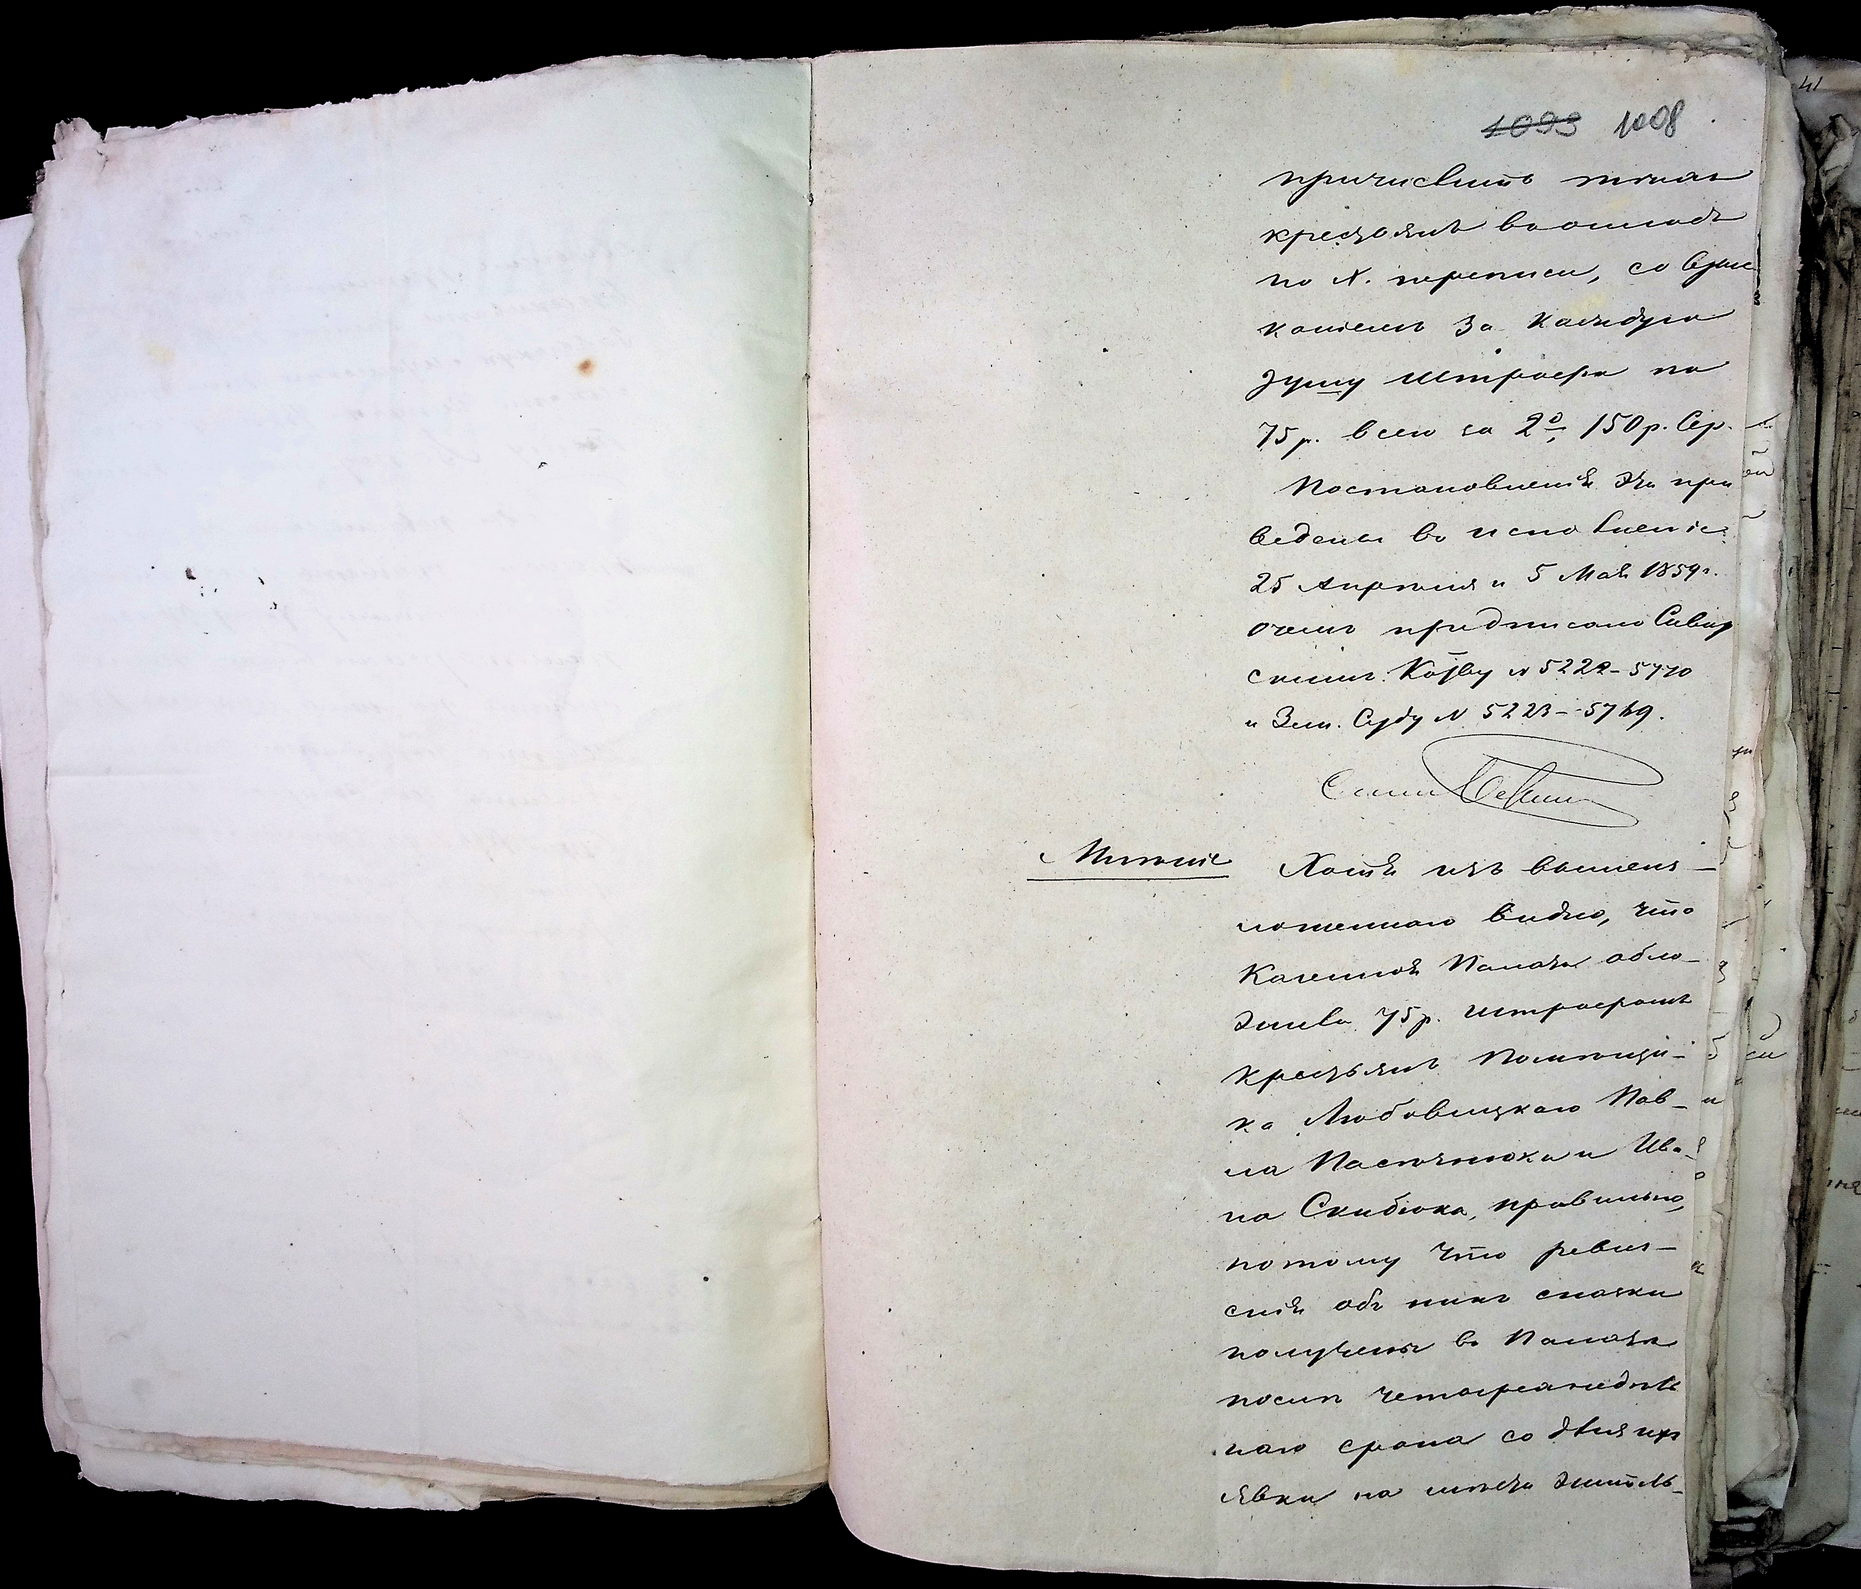 1093 1008
причислить тѣхъ
крестьянъ въ окладъ
по X. переписи, со взыс
каніемъ за каждую
душу штрафа по
75 р. всего за 2е, 150 р. Сер.
Постановленія эти при
ведены во исполненіе
25 Апрѣля и 5 Мая 1859 г.
о чемъ предписано
Казву № 5222-5770
и Зем. Суду № 5223-5769.
Мнѣніе
Хотя изъ вышеиз-
ложеннаго видно, что
Казенная Палата обло-
жила 75 р. штрафомъ
крестьянъ Помѣщи-
ка Любовицкаго Пав-
ла Пастернюка и Ива-
на Скибюка, правильно,
потому что ревиз-
скія объ нихъ сказки
получены въ Палатѣ
послѣ четырехнедѣль
наго срока со дня ихъ
явки на мѣста житель-